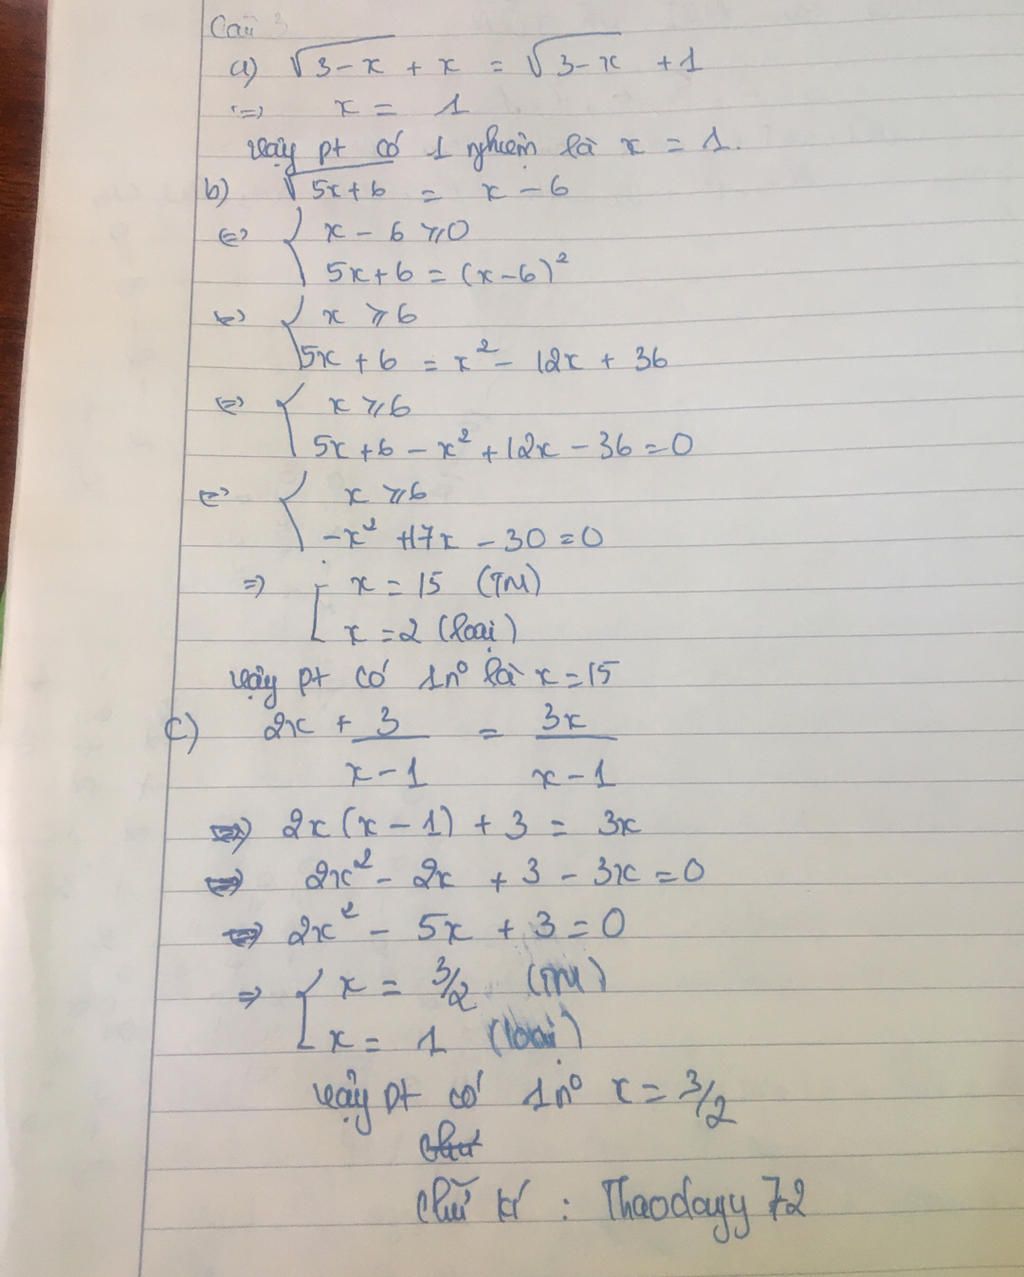 Câu 3
a) √3-x + x = √3-x + 1
⇔ x = 1
vậy pt có 1 nghiệm là x = 1.
b) √5x+6 = x - 6
⇔ { x - 6 ⩾ 0
5x+6 = (x-6)²
⇔ { x ⩾ 6
5x + 6 = x² - 12x + 36
⇔ { x ⩾ 6
5x+6 - x² + 12x - 36 = 0
⇔ { x ⩾ 6
-x² + 17x - 30 = 0
⇒ [ x = 15 (TM)
x = 2 (loại)
vậy pt có 1 n° là x = 15
c) 2x + 3/(x-1) = 3x/(x-1)
⇔ 2x(x-1) + 3 = 3x
⇔ 2x² - 2x + 3 - 3x = 0
⇔ 2x² - 5x + 3 = 0
⇒ [ x = 3/2 (TM)
x = 1 (loại)
vậy pt có 1 n° x = 3/2
chữ kí : Thaodayy 72